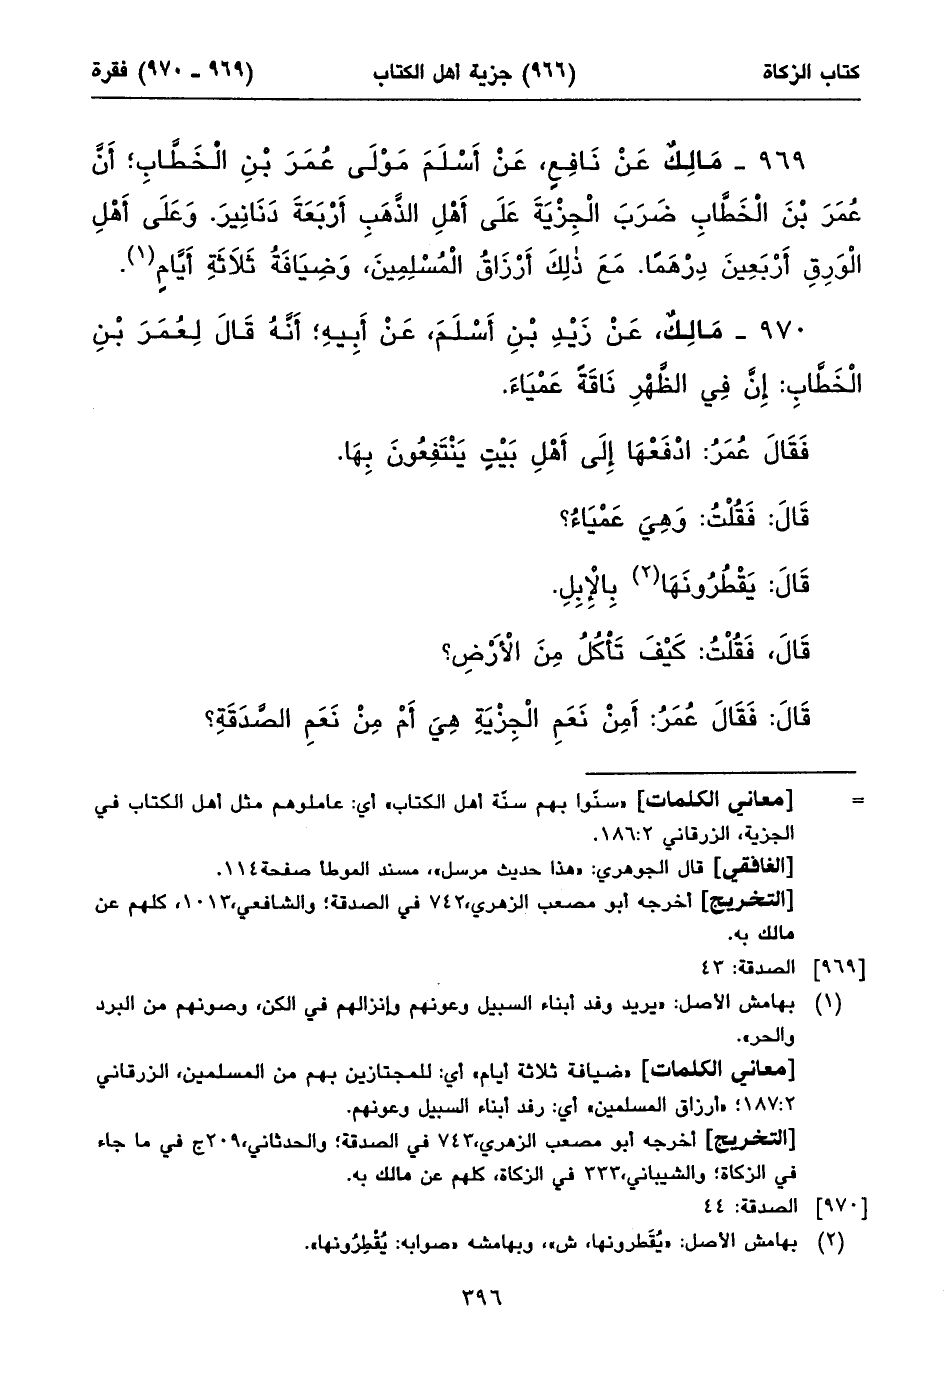 كتاب الزكاة (٩٦٦) جزية أهل الكتاب (٩٦٩ ـ ٩٧٠) فقرة
٩٦٩ ـ مَالِكٌ عَنْ نَافِعٍ، عَنْ أَسْلَمَ مَوْلَى عُمَرَ بْنِ الْخَطَّابِ؛ أَنَّ
عُمَرَ بْنَ الْخَطَّابِ ضَرَبَ الْجِزْيَةَ عَلَى أَهْلِ الذَّهَبِ أَرْبَعَةَ دَنَانِيرَ. وَعَلَى أَهْلِ
الْوَرِقِ أَرْبَعِينَ دِرْهَمًا. مَعَ ذٰلِكَ أَرْزَاقُ الْمُسْلِمِينَ، وَضِيَافَةُ ثَلَاثَةِ أَيَّامٍ(١).
٩٧٠ ـ مَالِكٌ، عَنْ زَيْدِ بْنِ أَسْلَمَ، عَنْ أَبِيهِ؛ أَنَّهُ قَالَ لِعُمَرَ بْنِ
الْخَطَّابِ: إِنَّ فِي الظَّهْرِ نَاقَةً عَمْيَاءَ.
فَقَالَ عُمَرُ: ادْفَعْهَا إِلَى أَهْلِ بَيْتٍ يَنْتَفِعُونَ بِهَا.
قَالَ: فَقُلْتُ: وَهِيَ عَمْيَاءُ؟
قَالَ: يَقْطُرُونَهَا(٢) بِالْإِبِلِ.
قَالَ، فَقُلْتُ: كَيْفَ تَأْكُلُ مِنَ الْأَرْضِ؟
قَالَ: فَقَالَ عُمَرُ: أَمِنْ نَعَمِ الْجِزْيَةِ هِيَ أَمْ مِنْ نَعَمِ الصَّدَقَةِ؟
= [معاني الكلمات] «سنّوا بهم سنّة أهل الكتاب» أي: عاملوهم مثل أهل الكتاب في
الجزية، الزرقاني ١٨٦:٢.
[الغافقي] قال الجوهري: «هذا حديث مرسل»، مسند الموطأ صفحة١١٤.
[التخريج] أخرجه أبو مصعب الزهري،٧٤٢ في الصدقة؛ والشافعي،١٠١٣، كلهم عن
مالك به.
[٩٦٩] الصدقة: ٤٣
(١) بهامش الأصل: «يريد وفد أبناء السبيل وعونهم وإنزالهم في الكن، وصونهم من البرد
والحر».
[معاني الكلمات] «ضيافة ثلاثة أيام» أي: للمجتازين بهم من المسلمين، الزرقاني
١٨٧:٢؛ «أرزاق المسلمين» أي: رفد أبناء السبيل وعونهم.
[التخريج] أخرجه أبو مصعب الزهري،٧٤٣ في الصدقة؛ والحدثاني،٢٠٩ج في ما جاء
في الزكاة؛ والشيباني،٣٣٣ في الزكاة، كلهم عن مالك به.
[٩٧٠] الصدقة: ٤٤
(٢) بهامش الأصل: «يُقَطرونها، ش»، وبهامشه «صوابه: يُقْطِرُونها».
٣٩٦